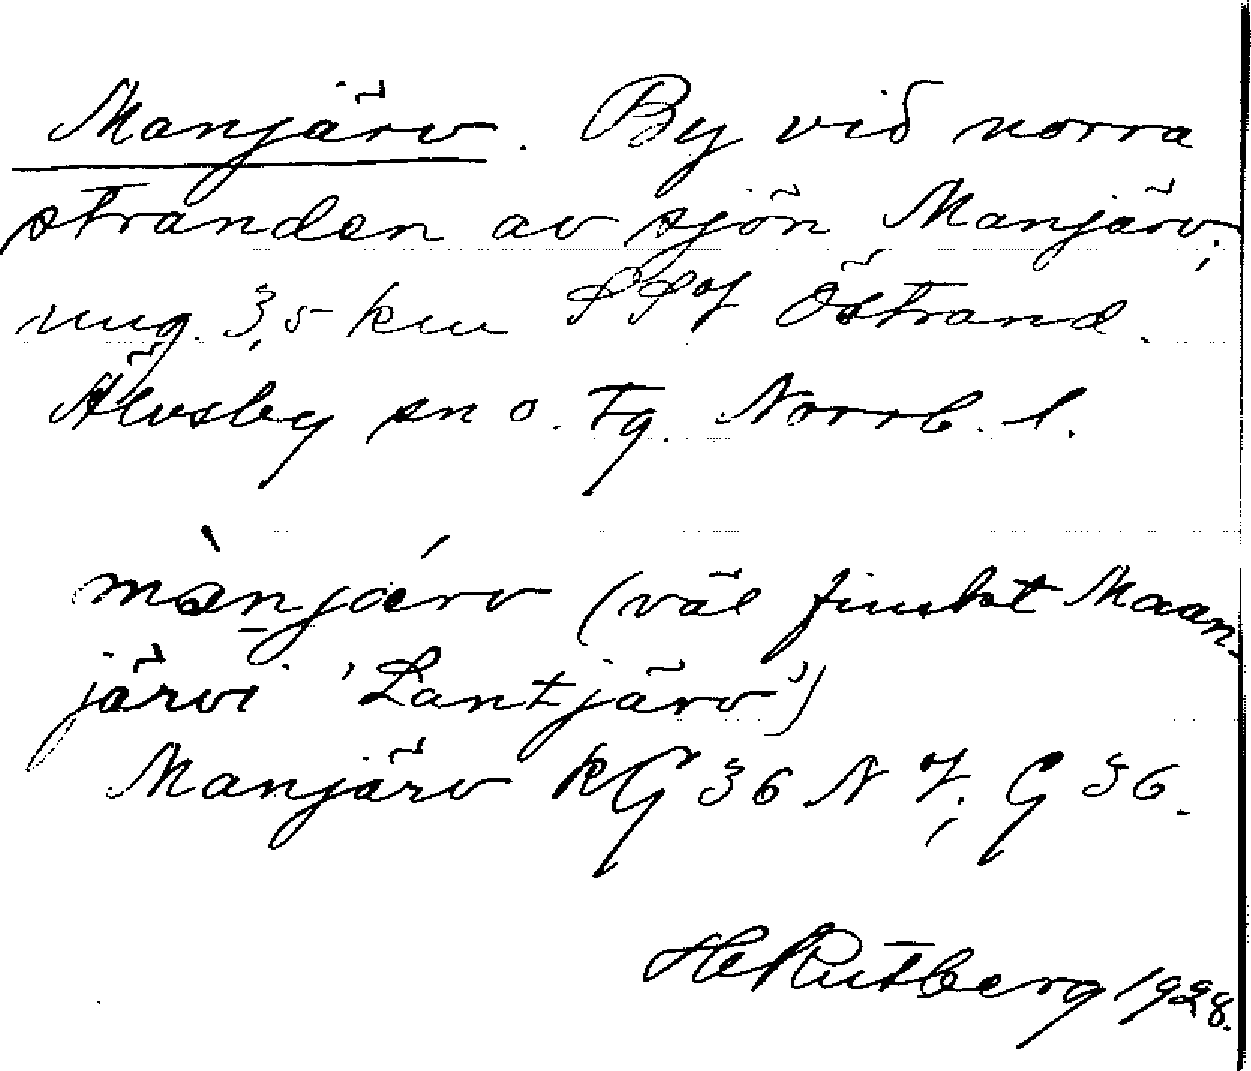 Manjärv. By vid norra
stranden av sjön Manjärv;
ung. 3,5 km SSV Östrand.
Älvsby sn o. tg. Norrb. l.
mànjárv (väl finskt Maan-
järvi 'Lantjärv')
Manjärv RG 36 N V; G 36.
HeRutberg 1928.